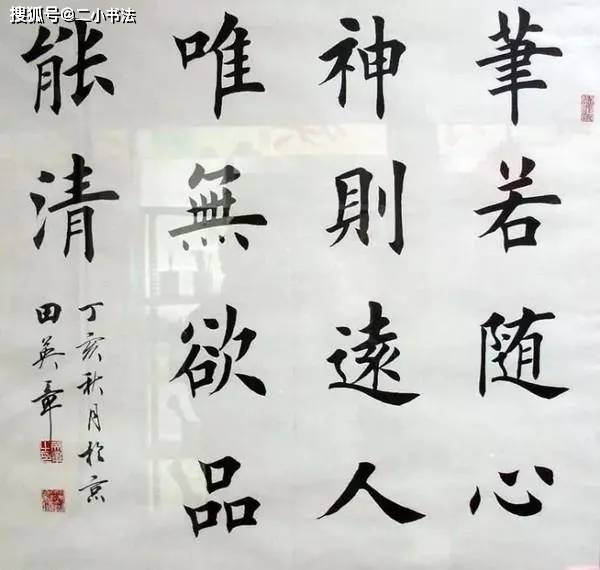 搜狐号@二小书法
筆若随心
神則遠人
唯無欲品
能清
丁亥秋月於京
田英章